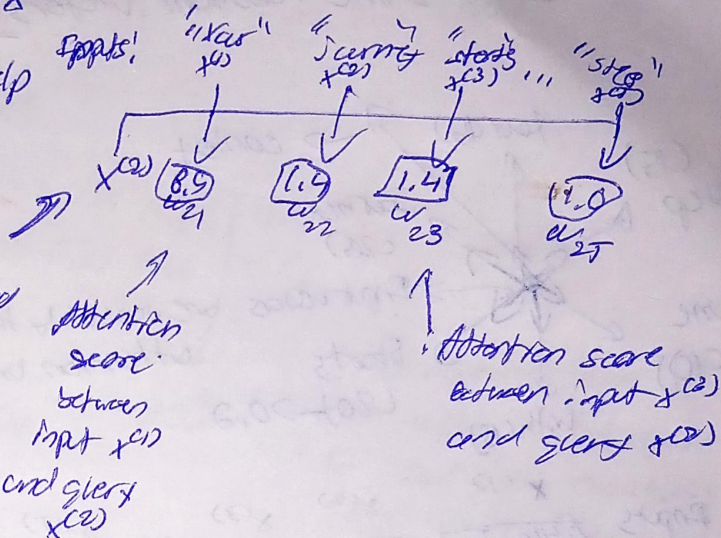 Inputs: "Your" "journey" "starts" ... "step"
x(1) x(2) x(3) x(T)
x(2) 1.4 1.4 1.0
w21 w22 w23 w2T
Attention
score
between
input x(1)
and query
x(2)
Attention score
between input x(3)
and query x(2)